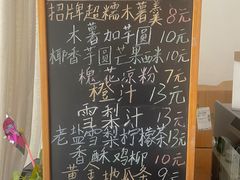 招牌超糯木薯羹 8元
木薯加芋圆 10元
椰香芋圆芒果西米 10元
槐花凉粉 7元
橙汁 13元
雪梨汁 13元
老盐雪梨柠檬茶 13元
香酥鸡柳 10元
黄金地瓜条 9元